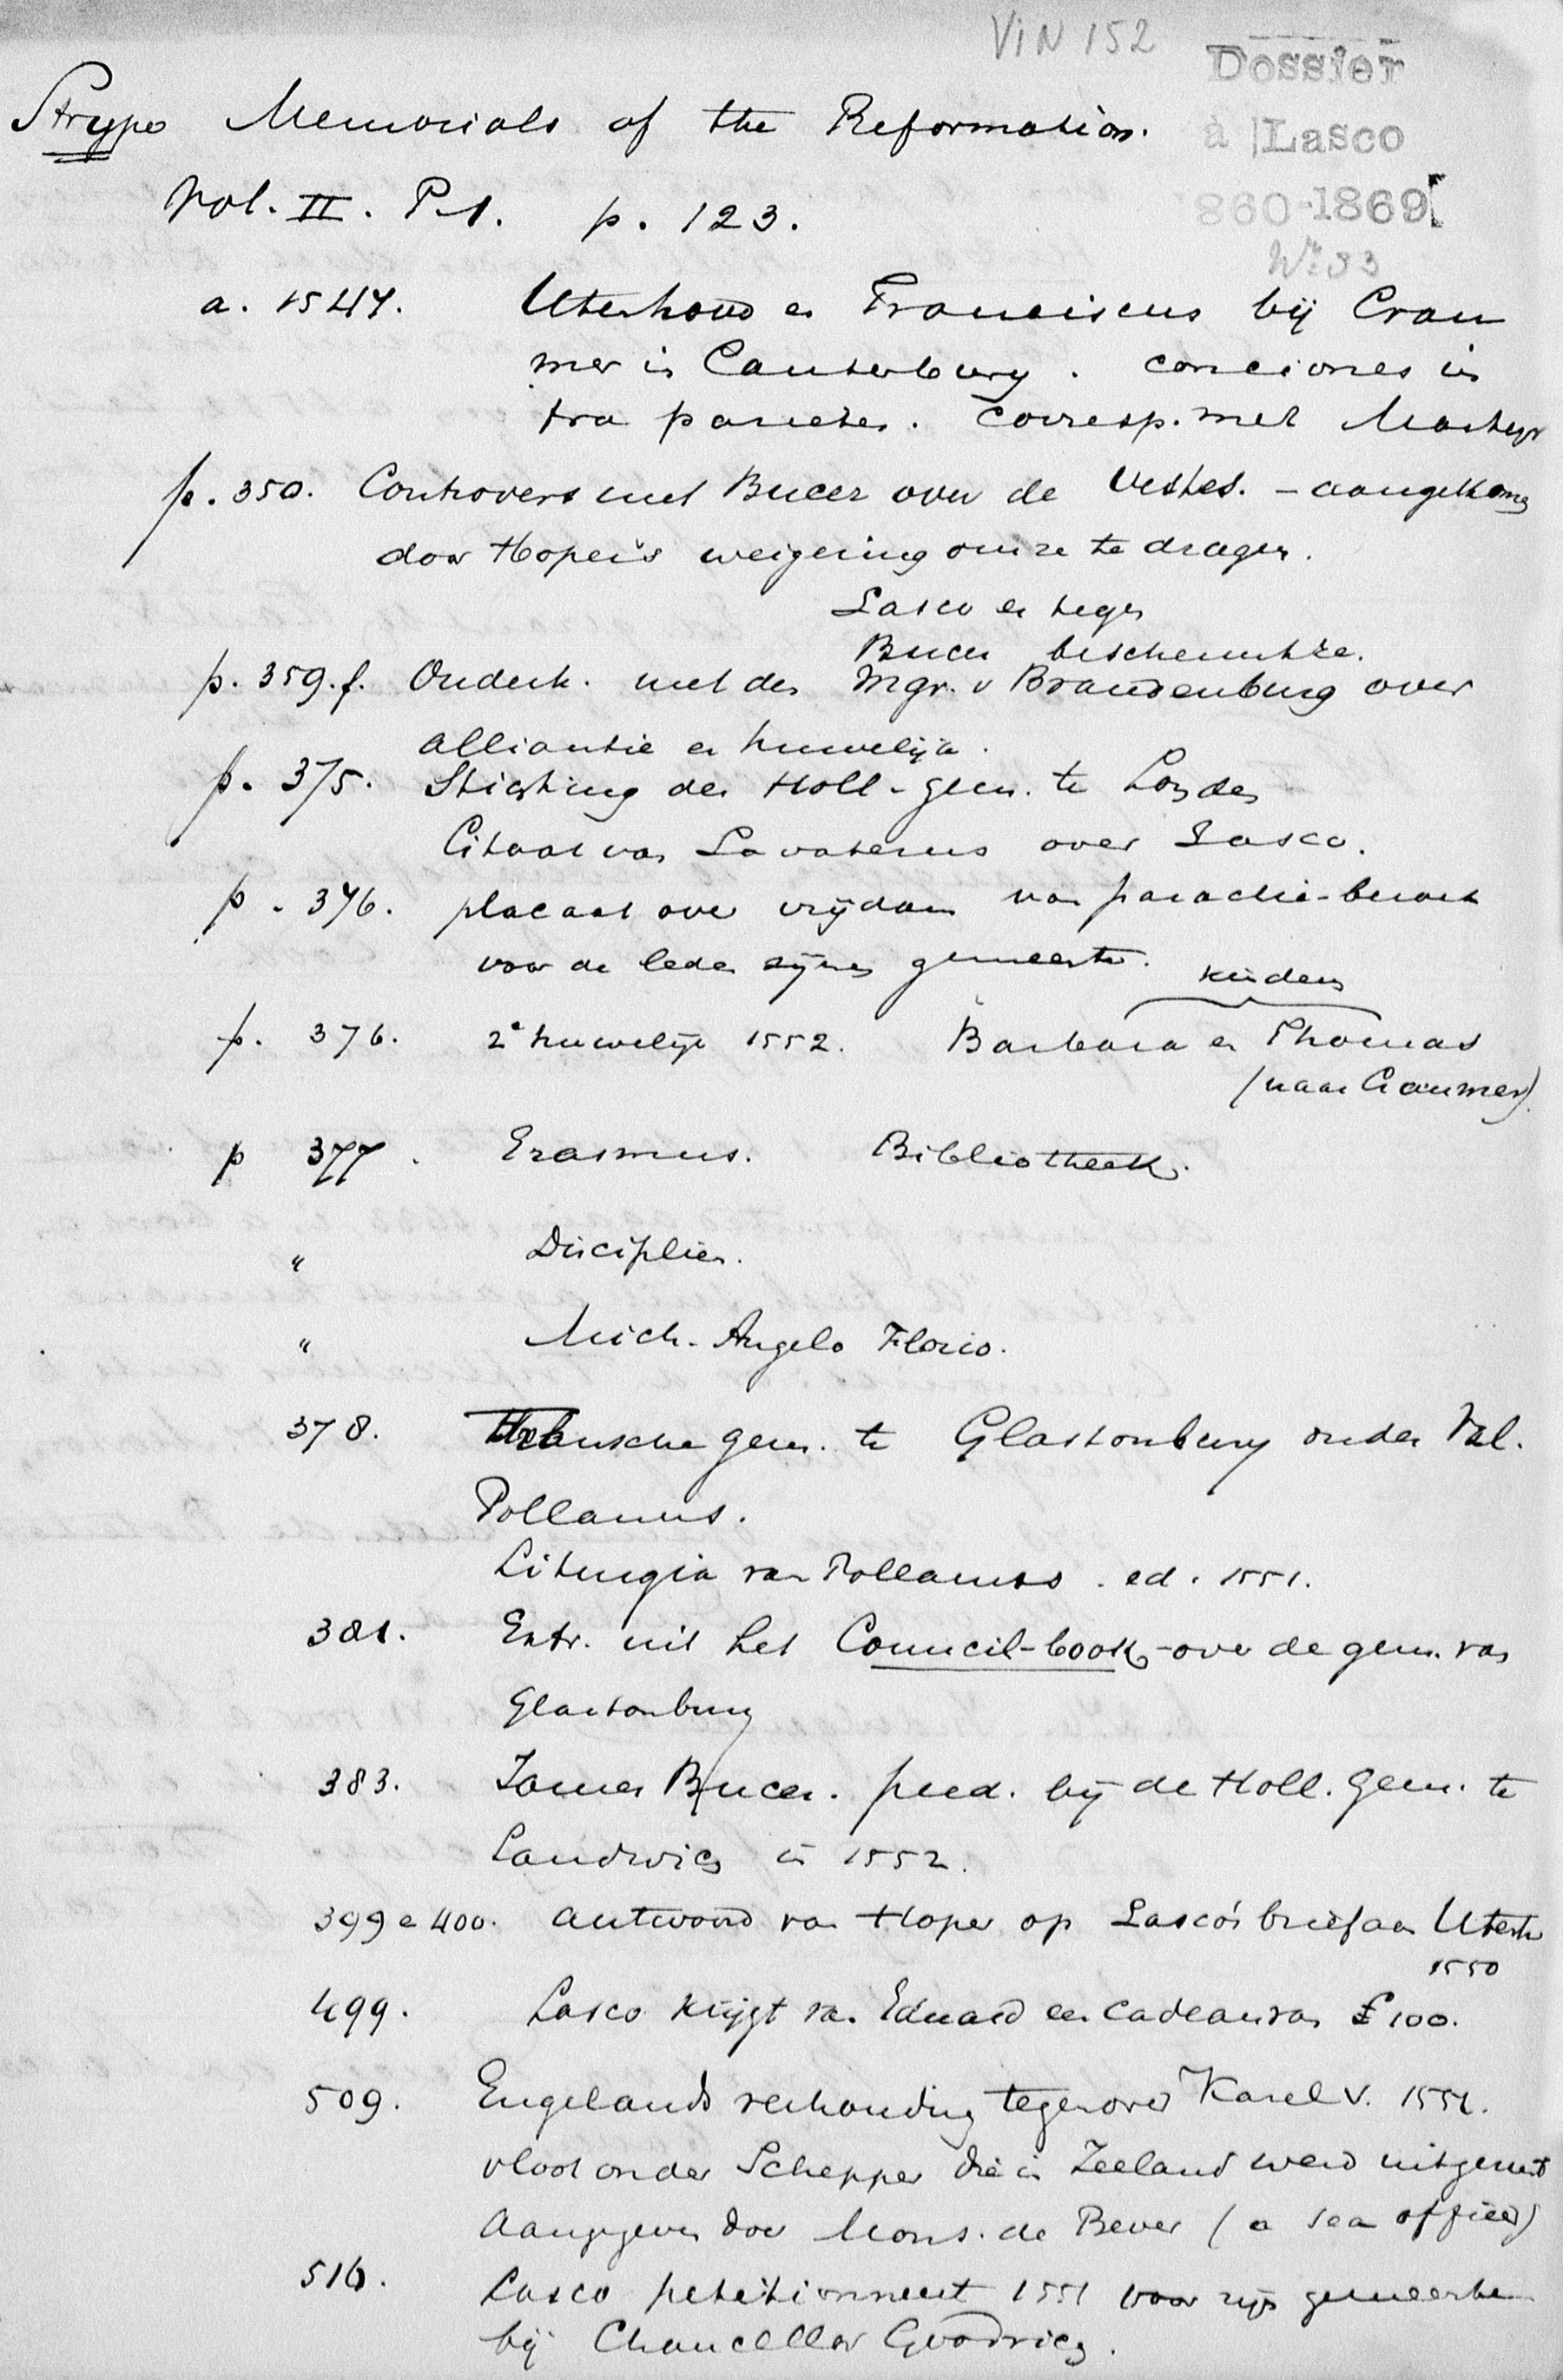 VIN 152
Dossier
à Lasco
860-1869
No 33
Strype Memorials of the Reformation.
Vol. II. P. 1. p. 123.
a. 1547. Utenhove en Franciscus bij Cran
mer in Canterbury. conciones in
tra parietes. Corresp. met Martyr
p. 350. Controvers met Bucer over de Vestes. – aangekomen
door Hoper's weigering om ze te dragen.
Lasco er tegen
Bucer beschermt ze.
p. 359. f. Onderh. met den Mgr. v Brandenburg over
alliantie en huwelijk.
p. 375. Stichting der Holl. gem. te Londen
Citaat van Lavaterus over Lasco.
p. 376. placaat over vrijdom van parochie-bezoek
voor de leden zijner gemeente.
kinderen
p. 376. 2e huwelijk 1552. Barbara en Thomas
(naar Cranmer).
p 377. Erasmus. Bibliotheek.
" Disciplien.
" Mich. Angelo Florio.
378. gem. te Glastonbury onder Val.
Pollanus.
Liturgia van Pollanus. ed. 1551.
381. Extr. uit het Council-book over de gem. van
Glastonbury
383. James Bucer. pred. bij de Holl. Gem. te
Sandwich in 1552.
399 en 400. Antwoord van Hoper op Lasco's brief aan Utenh
1550
499. Lasco krijgt van Eduard een cadeau van £ 100.
509. Engelands verhouding tegenover Karel V. 1551.
vloot onder Schepper die in Zeeland werd uitgerust
Aangegeven door Mons. de Bever (a sea officer)
516. Lasco petitionneert 1551 voor zijn gemeente
bij Chancellor Goodrich.